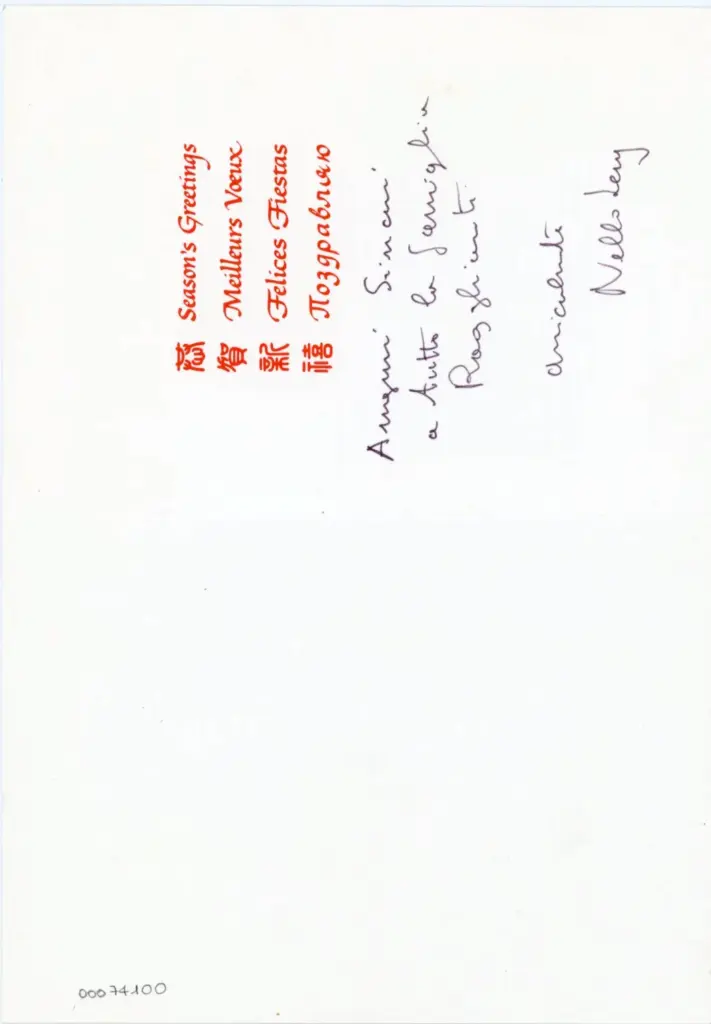 恭 Season's Greetings
賀 Meilleurs Vœux
新 Felices Fiestas
禧 Поздравляю
Auguri Sinceri
a tutta la famiglia
Ragghianti
amicalmente
Nello
00074100